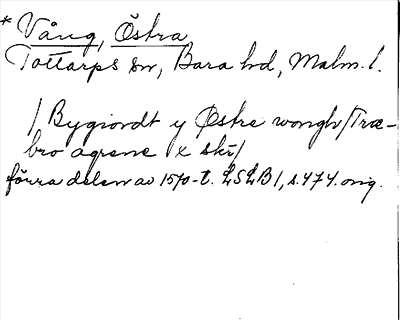 * Vång, Östra
Tottarps sn, Bara hd, Malm. l.
/ Bygiordt y Østre wongh / Træ-
bro agrene x ski /
förra delen av 1570-t. LSLB 1, s. 474. orig.